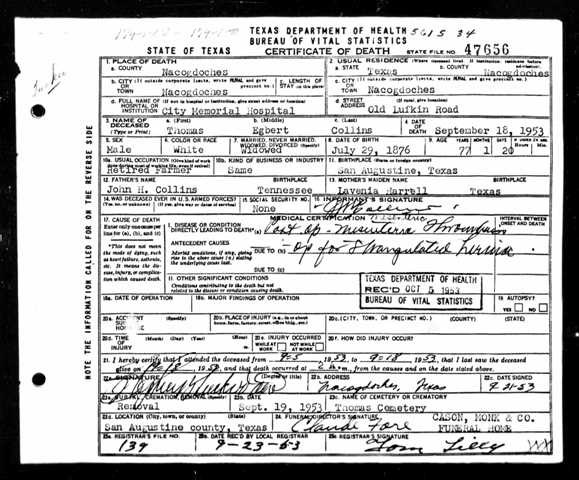 TEXAS DEPARTMENT OF HEALTH 5615 34
BUREAU OF VITAL STATISTICS
STATE OF TEXAS CERTIFICATE OF DEATH STATE FILE NO. 47656
1. PLACE OF DEATH 2. USUAL RESIDENCE (Where deceased lived. If institution: residence before admission)
a. COUNTY Nacogdoches a. STATE Texas b. COUNTY Nacogdoches
b. CITY (If outside corporate limits, write RURAL and give precinct no.) OR TOWN Nacogdoches c. LENGTH OF STAY c. CITY (If outside corporate limits, write RURAL and give precinct no.) OR TOWN Nacogdoches
d. FULL NAME OF HOSPITAL OR INSTITUTION (If not in hospital or institution, give street address or location) City Memorial Hospital d. STREET ADDRESS (If rural, give location) Old Lufkin Road
3. NAME OF DECEASED (Type or Print) a. (First) Thomas b. (Middle) Egbert c. (Last) Collins 4. DATE OF DEATH September 18, 1953
5. SEX Male 6. COLOR OR RACE White 7. MARRIED, NEVER MARRIED, WIDOWED, DIVORCED (Specify) Widowed 8. DATE OF BIRTH July 29, 1876 9. AGE 77 1 20
10a. USUAL OCCUPATION Retired Farmer 10b. KIND OF BUSINESS OR INDUSTRY Same 11. BIRTHPLACE San Augustine, Texas
12. FATHER'S NAME John H. Collins Tennessee 13. MOTHER'S MAIDEN NAME Lavenia Harrell Texas
14. WAS DECEASED EVER IN U.S. ARMED FORCES? (Yes, no, or unknown) (If yes, give war or dates of service) 15. SOCIAL SECURITY NO. None 16. INFORMANT'S SIGNATURE
17. CAUSE OF DEATH Enter only one cause per line for (a), (b), and (c) MEDICAL CERTIFICATION INTERVAL BETWEEN ONSET AND DEATH
I. DISEASE OR CONDITION DIRECTLY LEADING TO DEATH (a) Post op - Thrombosis
ANTECEDENT CAUSES
DUE TO (b) Op for Strangulated hernia
*This does not mean the mode of dying, such as heart failure, asthenia, etc. It means the disease, injury, or complication which caused death.
Morbid conditions, if any, giving rise to the above cause (a) stating the underlying cause last.
DUE TO (c)
II. OTHER SIGNIFICANT CONDITIONS
Conditions contributing to the death but not related to the disease or condition causing death.
TEXAS DEPARTMENT OF HEALTH
REC'D OCT 5 1953
BUREAU OF VITAL STATISTICS
18a. DATE OF OPERATION 18b. MAJOR FINDINGS OF OPERATION 19. AUTOPSY? YES NO
20a. ACCIDENT 20b. PLACE OF INJURY 20c. (CITY, TOWN, OR PRECINCT NO.) (COUNTY) (STATE)
20d. TIME OF INJURY 20e. INJURY OCCURRED WHILE AT WORK NOT WHILE AT WORK 20f. HOW DID INJURY OCCUR?
21. I hereby certify that I attended the deceased from 9-5, 1953, to 9-18, 1953, that I last saw the deceased alive on 9-18, 1953, and that death occurred at m., from the causes and on the date stated above.
22a. SIGNATURE (Degree or title) 22b. ADDRESS Nacogdoches, Texas 22c. DATE SIGNED 9-21-53
23a. BURIAL, CREMATION, REMOVAL (Specify) Removal 23b. DATE Sept. 19, 1953 23c. NAME OF CEMETERY OR CREMATORY Thomas Cemetery
23d. LOCATION (City, town, or county) (State) San Augustine county, Texas 24. FUNERAL DIRECTOR'S SIGNATURE Claude Fore CASON, MONK & CO. FUNERAL HOME
25a. REGISTRAR'S FILE NO. 139 25b. DATE REC'D BY LOCAL REGISTRAR 9-23-53 25c. REGISTRAR'S SIGNATURE Tom Lilly
NOTE THE INFORMATION CALLED FOR ON THE REVERSE SIDE